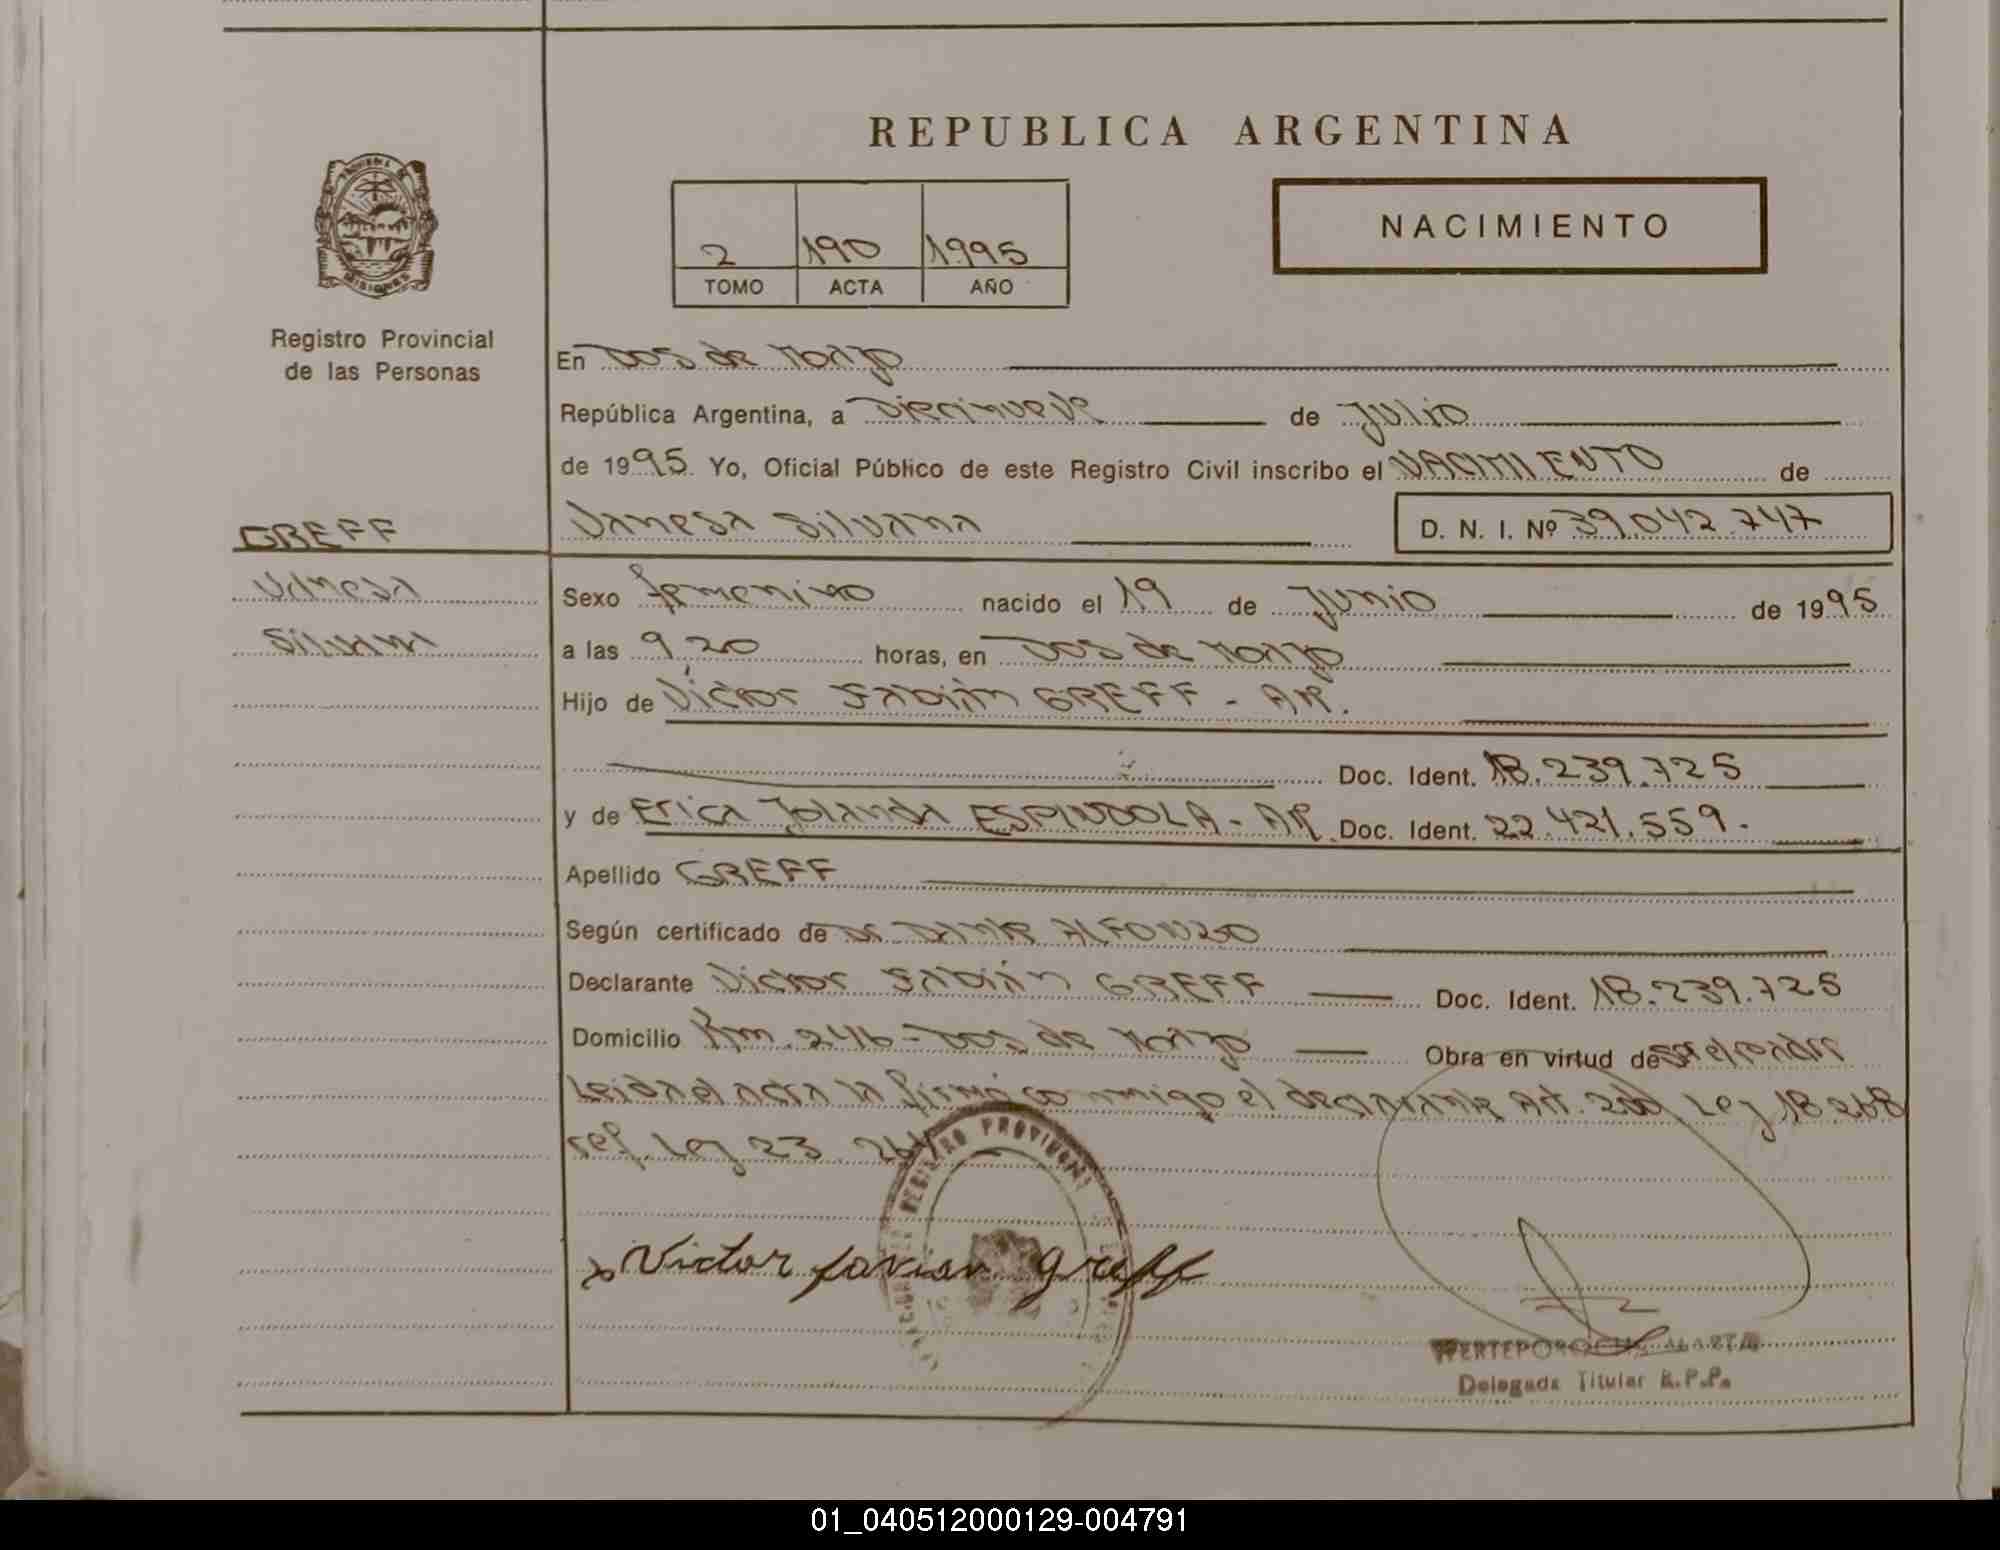 REPUBLICA ARGENTINA
NACIMIENTO
2 190 1995
TOMO ACTA AÑO
MISIONES
Registro Provincial
de las Personas
En Dos de Marzo
República Argentina, a Diecinueve de Julio
de 1995. Yo, Oficial Público de este Registro Civil inscribo el NACIMIENTO de
GREFF
Vanesa Silvana D. N. I. Nº 39.042.747
Vanesa
Silvana
Sexo femenino nacido el 19 de Junio de 1995
a las 9,20 horas, en Dos de Marzo
Hijo de Victor Fabián GREFF - AR.
Doc. Ident. 18.239.725
y de Erica Yolanda ESPINDOLA - AR. Doc. Ident. 22.421.559.
Apellido GREFF
Según certificado de Dr ALFONZO
Declarante Victor Fabián GREFF Doc. Ident. 18.239.725
Domicilio Km. 246 - Dos de Marzo Obra en virtud de ser el padre
Leida el acta la firma conmigo el declarante Art. Ley 18 268
ref. Ley 23. 264
REGISTRO PROVINCIAL
Victor favian greff
Delegada Titular R.P.P.
01_040512000129-004791